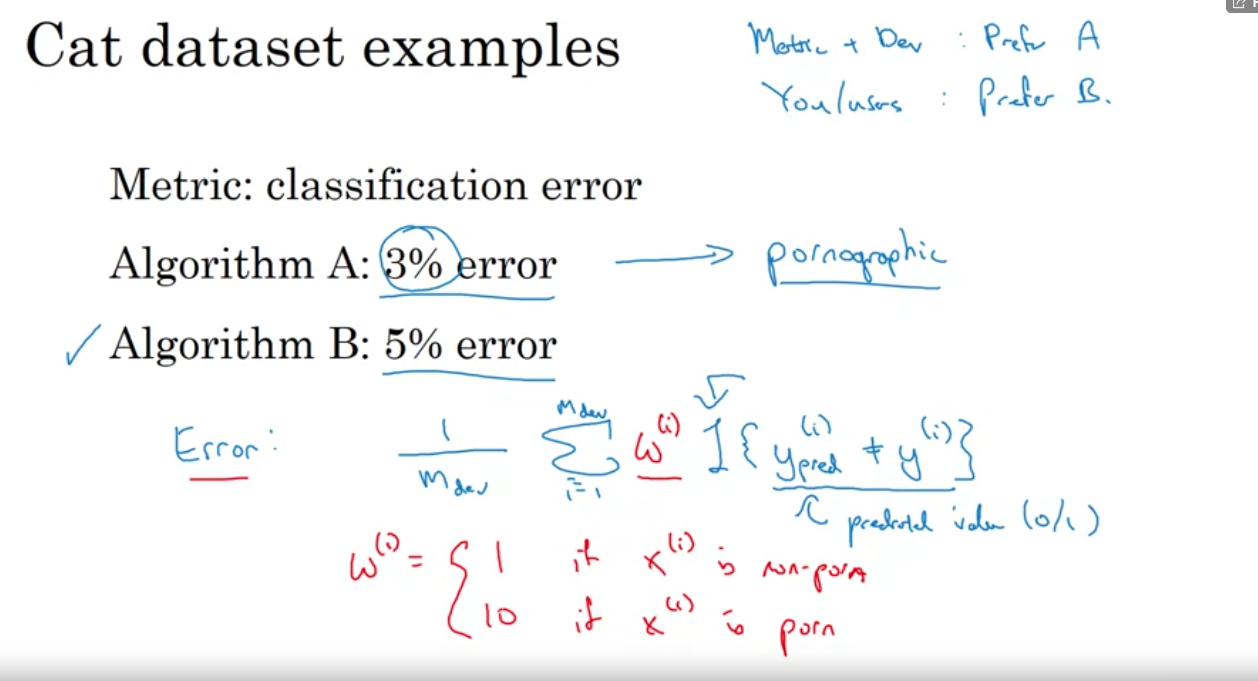 Cat dataset examples
Metric + Dev : Prefer A
You/users : Prefer B.
Metric: classification error
Algorithm A: 3% error → pornographic
✓ Algorithm B: 5% error
Error: 1/m_dev ∑_{i=1}^{m_dev} w^(i) 1{y_pred^(i) ≠ y^(i)}
predicted value (0/1)
w^(i) = { 1 if x^(i) is non-porn
10 if x^(i) is porn